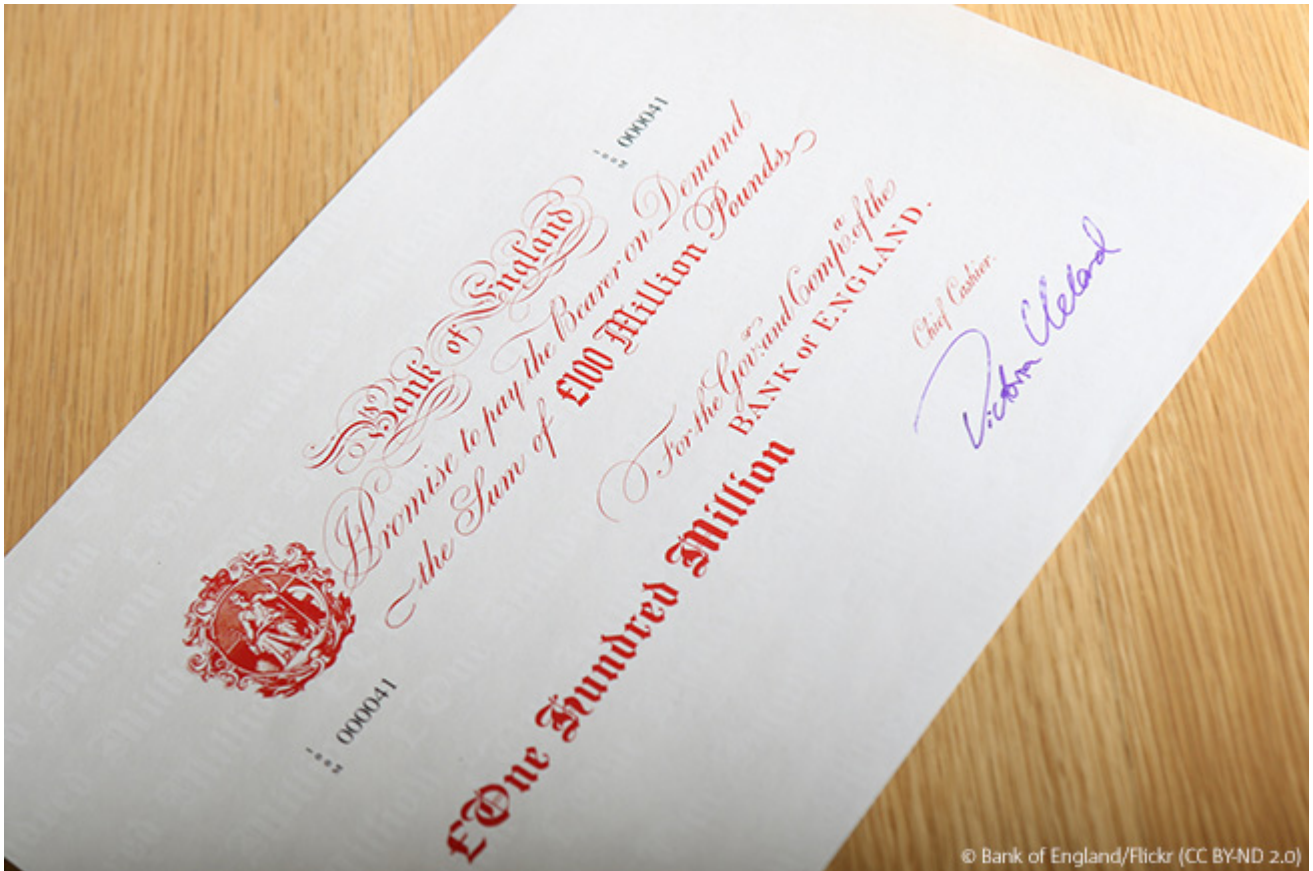 1
100M 000041
Bank of England
I Promise to pay the Bearer on Demand
the Sum of £100 Million Pounds
For the Govr. and Compa. of the
BANK of ENGLAND.
Chief Cashier.
Victoria Cleland
£One Hundred Million
000041
© Bank of England/Flickr (CC BY-ND 2.0)